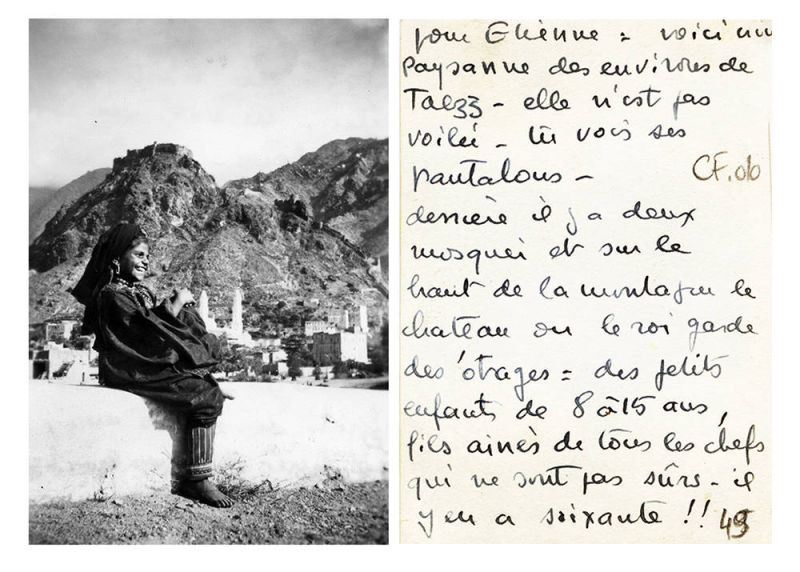 pour Etienne = voici un
Paysanne des environs de
Taezz - elle n'est pas
voilée - tu vois ses
pantalons -
CF.06
derrière il y a deux
mosquei et sur le
haut de la montagne le
chateau ou le roi garde
des ôtages = des petits
enfants de 8 à 15 ans,
fils ainès de tous les chefs
qui ne sont pas sûrs - il
y en a soixante !!
49